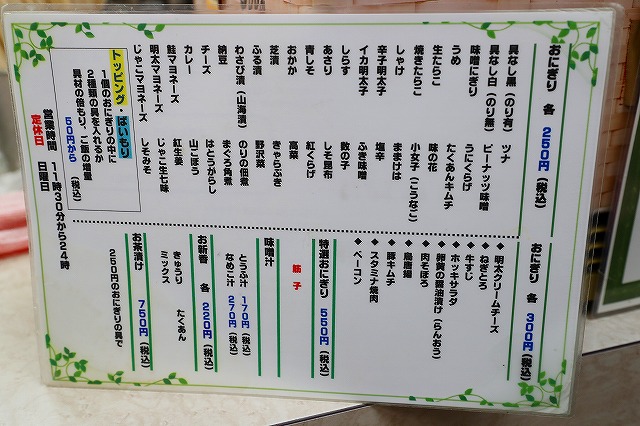 おにぎり 各 250円(税込)
具なし黒(のり有)
具なし白(のり無)
味噌にぎり
うめ
生たらこ
焼きたらこ
しゃけ
辛子明太子
イカ明太子
しらす
あさり
青しそ
おかか
芝漬
ふる漬
わさび漬(山海漬)
納豆
チーズ
カレー
鮭マヨネーズ
明太マヨネーズ
じゃこマヨネーズ
ツナ
ピーナッツ味噌
うにくらげ
たくあんキムチ
味の花
小女子(こうなご)
ままけは
塩辛
ふき味噌
数の子
しそ昆布
紅くらげ
高菜
きゃらぶき
野沢菜
のりの佃煮
まぐろ角煮
はとうがらし
山ごぼう
紅生姜
じゃこ生七味
しそみそ
トッピング・ばいもり
1個のおにぎりの中に
2種類の具を入れるか
具材の倍もり、ご飯の増量
50円から (税込)
営業時間 11時30分から24時
定休日 日曜日
おにぎり 各 300円(税込)
◆明太クリームチーズ
◆ねぎとろ
◆牛すじ
◆ホッキサラダ
◆卵黄の醤油漬け(らんおう)
◆肉そぼろ
◆鳥唐揚
◆豚キムチ
◆スタミナ焼肉
◆ベーコン
特選おにぎり 550円(税込)
筋子
味噌汁
とうふ汁 170円(税込)
なめこ汁 270円(税込)
お新香 各 220円(税込)
きゅうり たくあん
ミックス
お茶漬け 750円(税込)
250円のおにぎりの具で